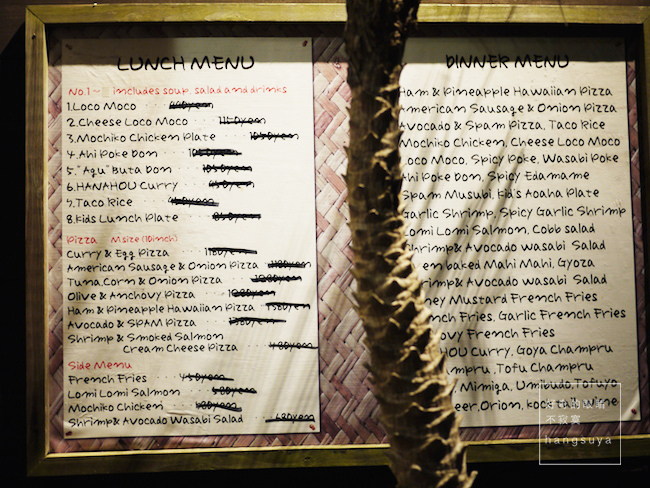 LUNCH MENU
No.1~ includes soup, salad and drinks
1.Loco Moco
2.Cheese Loco Moco yen
3.Mochiko Chicken Plate yen
4.Ahi Poke Don
5."Agu" Buta Don
6.HANAHOU Curry
7.Taco Rice
8.Kids Lunch Plate
Pizza M size (10inch)
Curry & Egg Pizza
American Sausage & Onion Pizza
Tuna,Corn & Onion Pizza
Olive & Anchovy Pizza
Ham & Pineapple Hawaiian Pizza
Avocado & SPAM Pizza
Shrimp & Smoked Salmon
Cream Cheese Pizza
Side Menu
French Fries
Lomi Lomi Salmon
Mochiko Chicken
Shrimp& Avocado Wasabi Salad
DINNER MENU
Ham & Pineapple Hawaiian Pizza
American Sausage & Onion Pizza
Avocado & Spam Pizza, Taco Rice
Mochiko Chicken, Cheese Loco Moco
Loco Moco, Spicy Poke, Wasabi Poke
Ahi Poke Don, Spicy Edamame
Spam Musubi, Kid's Aoaha Plate
Garlic Shrimp, Spicy Garlic Shrimp
Lomi Lomi Salmon, Cobb salad
Shrimp& Avocado Wasabi Salad
en baked Mahi Mahi, Gyoza
Shrimp& Avocado Wasabi Salad
ney Mustard French Fries
nch Fries, Garlic French Fries
ovy French Fries
HOU Curry, Goya Champru
mpru, Tofu Champru
, Mimiga, Umibudo,Tofuyo
eer,Orion,
不寂寞
hangsuya